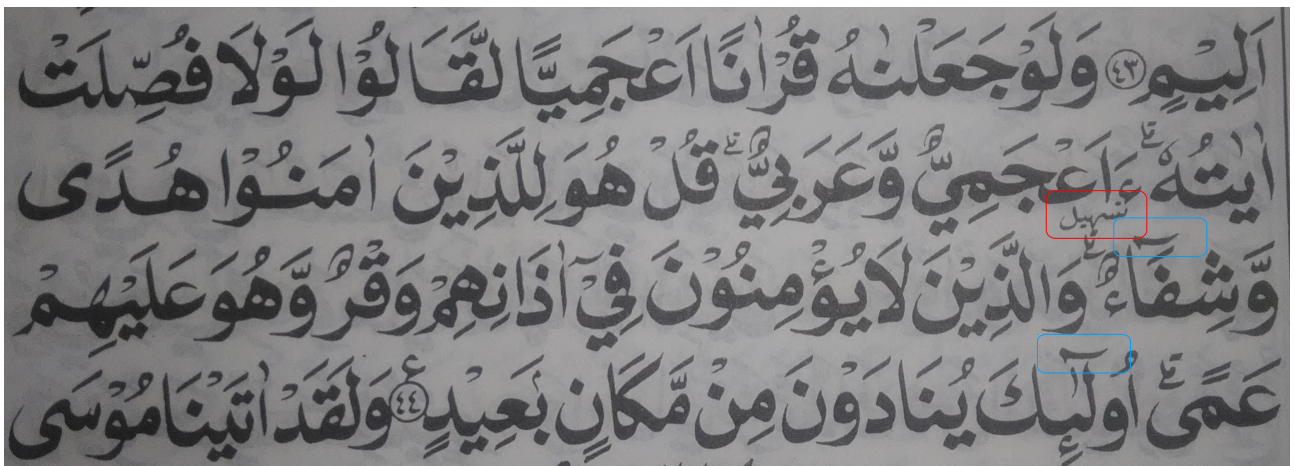 اَلِیْمٍ ﴿٤٣﴾ وَلَوْ جَعَلْنٰهُ قُرْاٰنًا اَعْجَمِیًّا لَّقَالُوْا لَوْلَا فُصِّلَتْ
اٰیٰتُهٗ ؕ ءَاَعْجَمِیٌّ وَّعَرَبِیٌّ ؕ قُلْ هُوَ لِلَّذِیْنَ اٰمَنُوْا هُدًی
تسہیل
وَّشِفَآءٌ ؕ وَالَّذِیْنَ لَا یُؤْمِنُوْنَ فِیْۤ اٰذَانِهِمْ وَقْرٌ وَّهُوَ عَلَیْهِمْ
عَمًی ؕ اُولٰٓىِٕكَ یُنَادَوْنَ مِنْ مَّكَانٍۭ بَعِیْدٍ ﴿٤٤﴾ ع وَلَقَدْ اٰتَیْنَا مُوْسَی